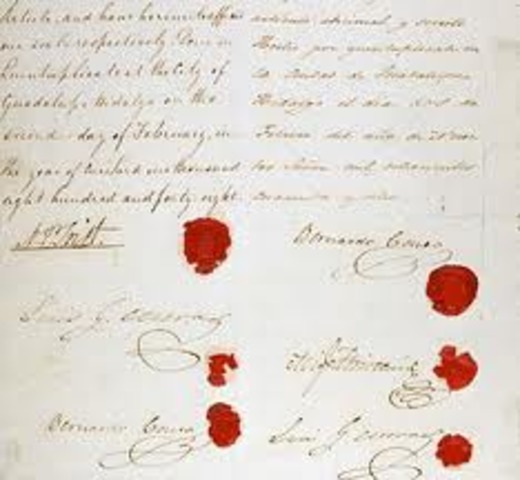 Article, and have hereunto affixed
our seals respectively. Done in
Quintuplicate at the City of
Guadalupe Hidalgo on the
second day of February, in
the year of our Lord one thousand
eight hundred and forty eight.
y
Hecho por quintuplicado en
la Ciudad de Guadalupe
Hidalgo el dia dos de
Febrero del año de
mil ochocientos
cuarenta y ocho
N. P. Trist.
Bernardo Couto
Luis G. Cuevas
Bernardo Couto
Luis G. Cuevas